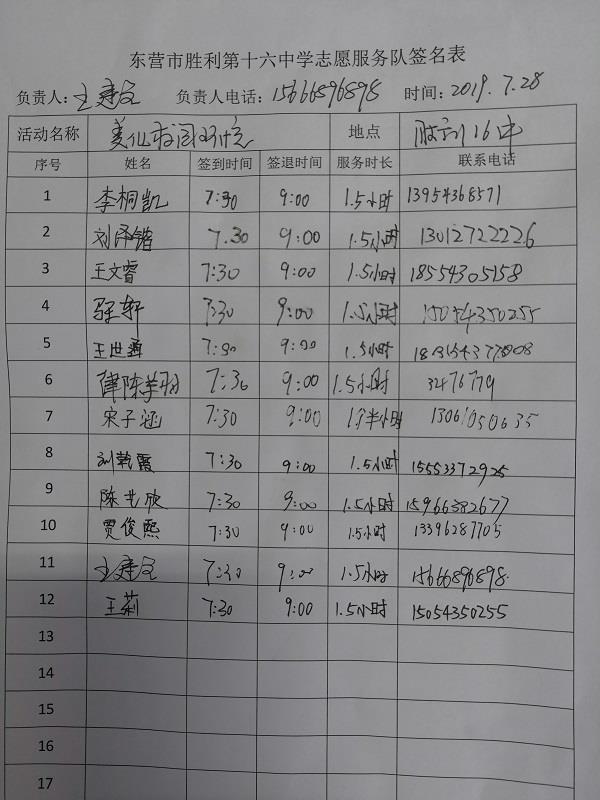 东营市胜利第十六中学志愿服务队签名表
负责人: 王建民 负责人电话: 15666896898 时间: 2019.7.28
活动名称 地点 胜利16中
序号 姓名 签到时间 签退时间 服务时长 联系电话
1 李桐凯 7:30 9:00 1.5小时 13954368571
2 刘泽锴 7.30 9:00 1.5小时 13012722226
3 王文睿 7:30 9:00 1.5小时 18554305158
4 轩 7:30 9:00 1.5小时 15054350255
5 王世通 7:30 9:00 1.5小时
6 7:30 9:00 1.5小时 3476779
7 宋子涵 7:30 9:00 1个半小时 13061050635
8 刘乾震 7:30 9:00 1.5小时 15553372925
9 陈艺欣 7:30 9:00 1.5小时 15966382677
10 贾俊熙 7:30 9:00 1.5小时 13396287705
11 王建民 7:30 9:00 1.5小时 15666896898
12 王莉 7:30 9:00 1.5小时 15054350255
13
14
15
16
17